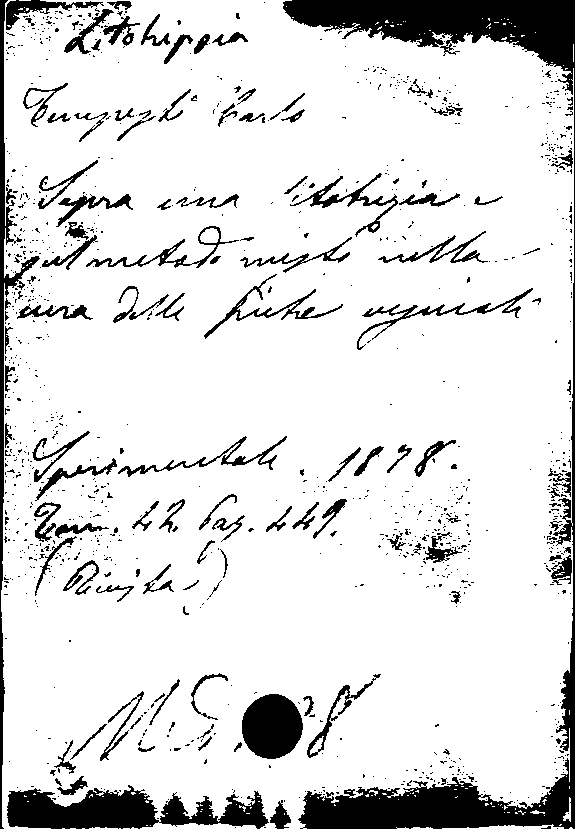 Litotrippia
Carlo
Sopra una litotrizia e
sul metodo misto nella
cura delle pietre vescicali
Sperimentale. 1878.
Tom. 42. Pag. 449.
(Rivista)